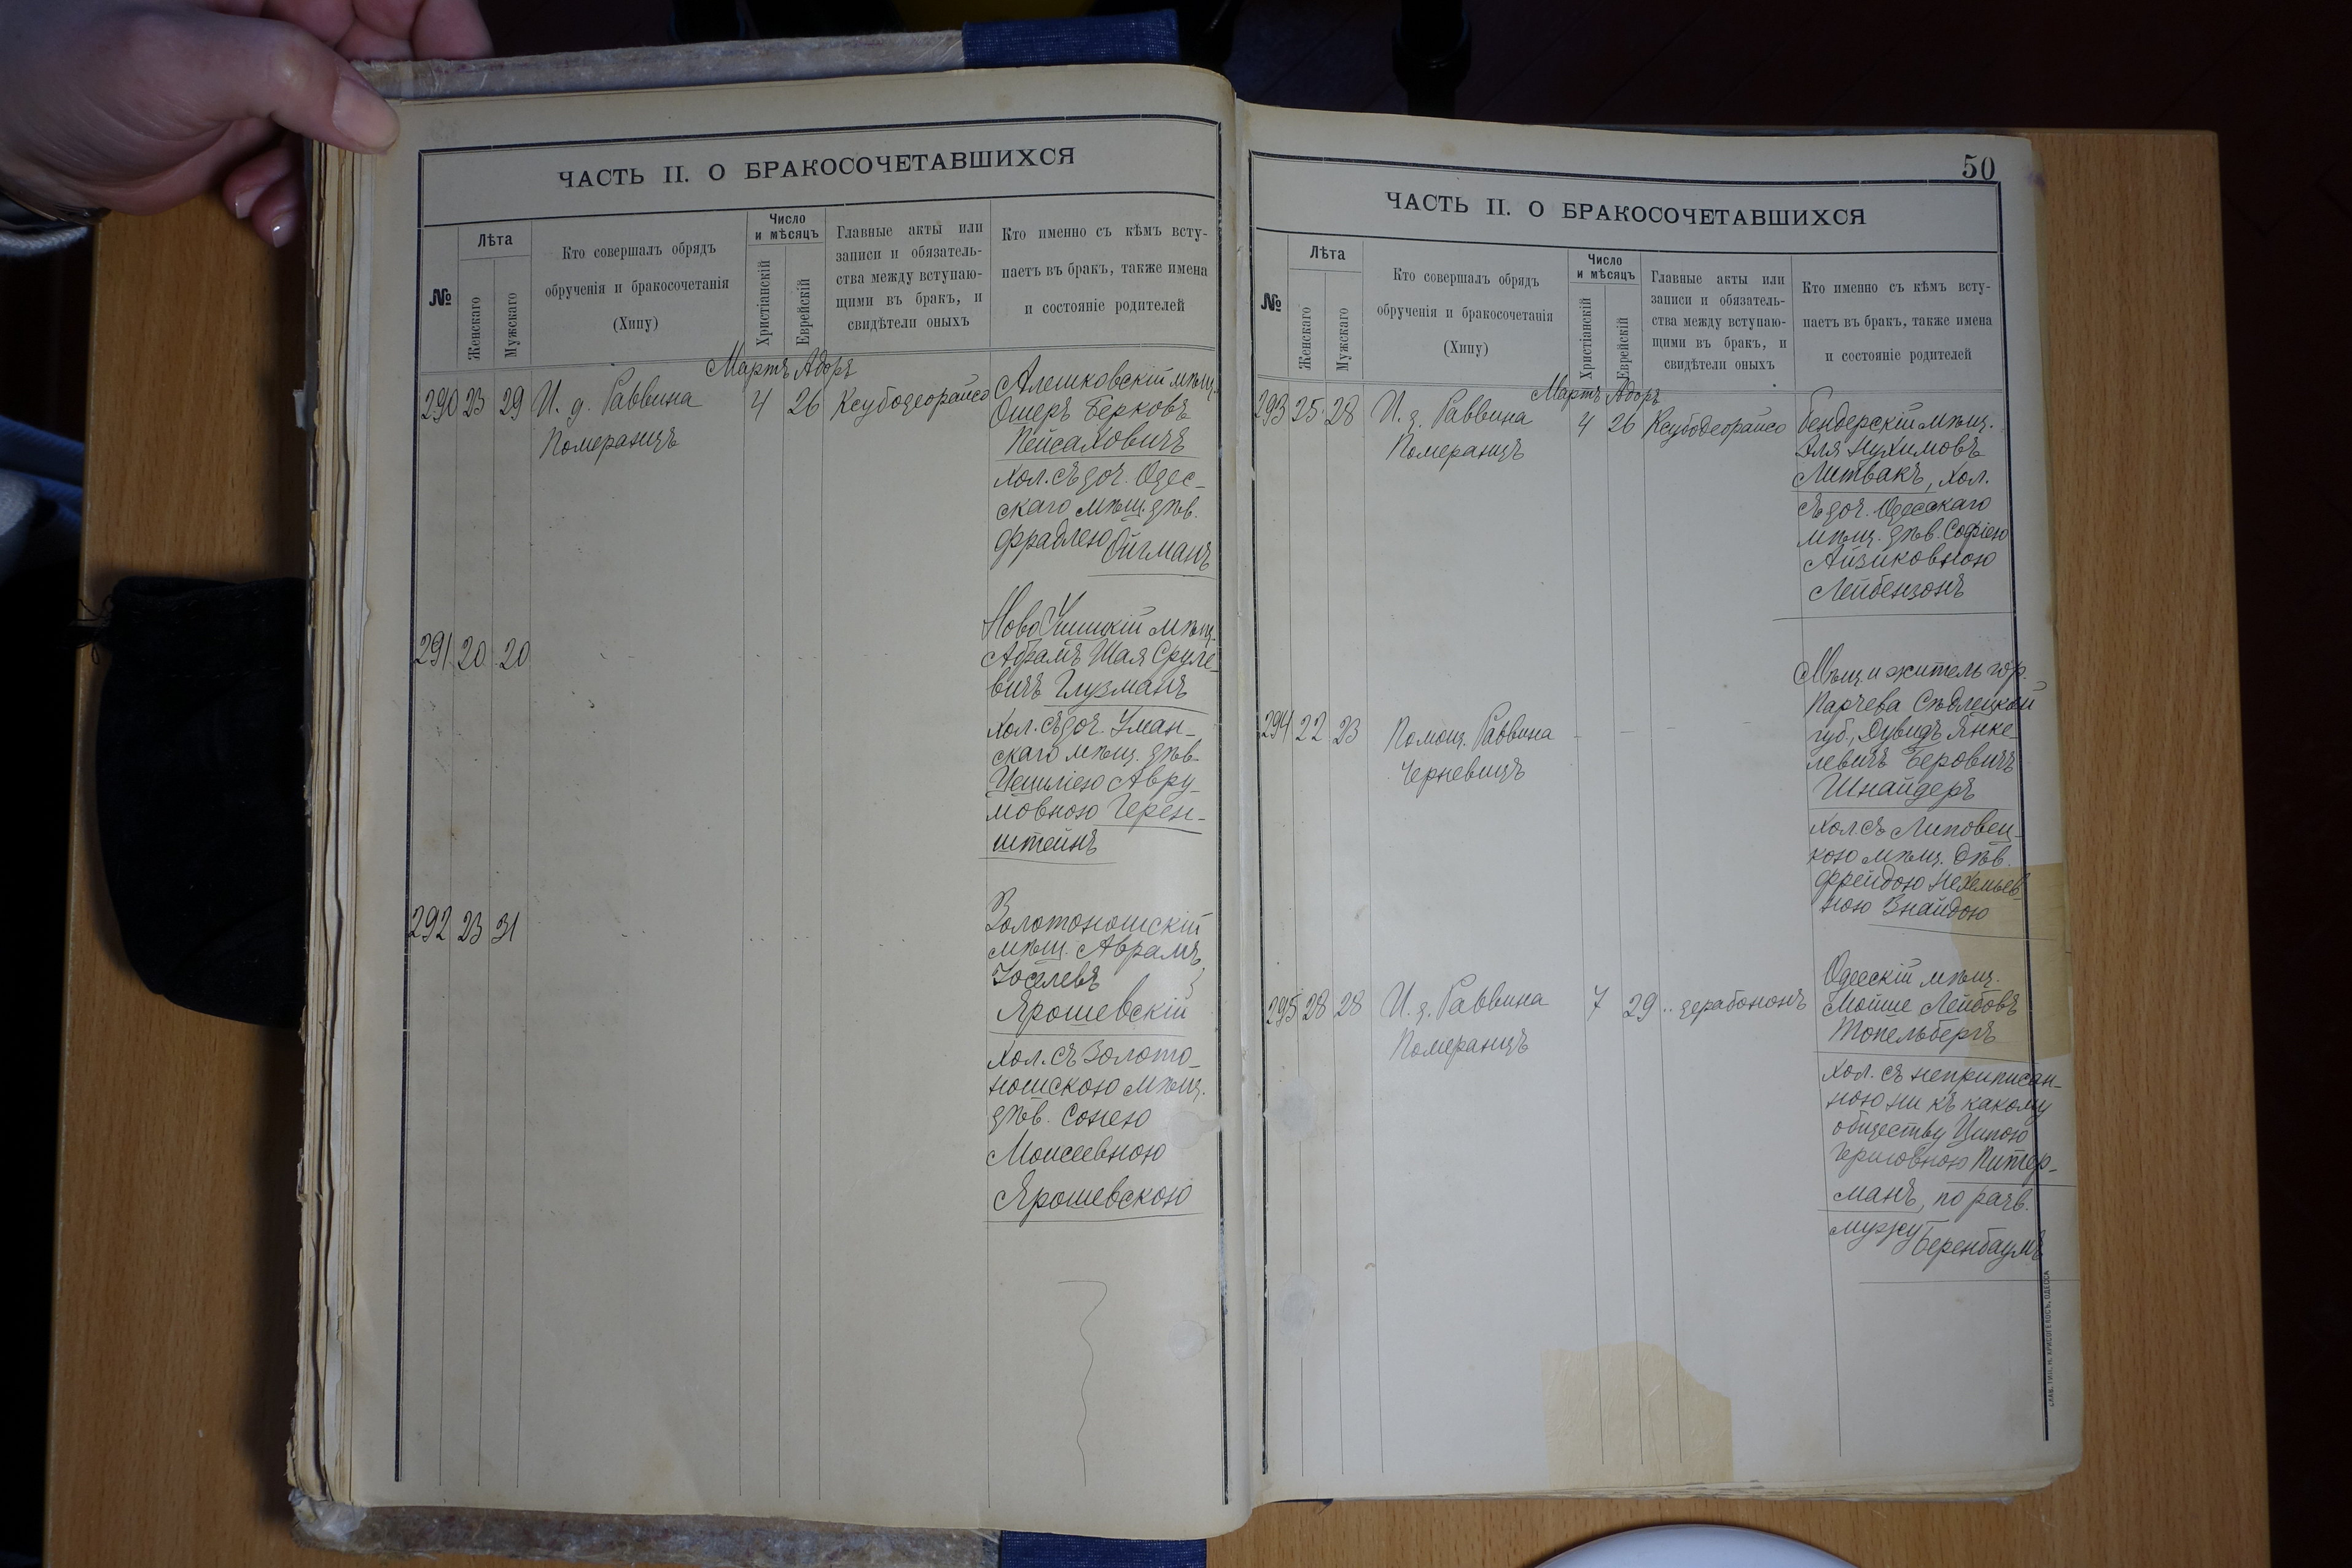 ЧАСТЬ II. О БРАКОСОЧЕТАВШИХСЯ
№
Лѣта
Женскаго
Мужскаго
Кто совершалъ обрядъ
обрученія и бракосочетанія
(Хипу)
Число
и мѣсяцъ
Христіанскій
Еврейскій
Главные акты или
записи и обязатель-
ства между вступаю-
щими въ бракъ, и
свидѣтели оныхъ
Кто именно съ кѣмъ всту-
паетъ въ бракъ, также имена
и состояніе родителей
Мартъ Адоръ
290 23 29 И. д. Раввина
Померанцъ
4 26 Ксубодеорайсо
Алешковскій мѣщ.
Ошеръ Берковъ
Пейсаховичъ
хол. съ доч. Одес-
скаго мѣщ. дѣв.
Фрадлею Ойгманъ
291 20 20
Ново Ушицкій мѣщ.
Абрамъ Шая Сруле-
вичъ Глузманъ
хол. съ доч. Уман-
скаго мѣщ. дѣв.
Авру-
мовною Герен-
штейнъ
292 23 31
Золотоношскій
мѣщ. Аврамъ
Іоселевъ
Ярошевскій
хол. съ Золото-
ношскою мѣщ.
дѣв. Сонею
Моисеевною
Ярошевскою
50
ЧАСТЬ II. О БРАКОСОЧЕТАВШИХСЯ
№
Лѣта
Женскаго
Мужскаго
Кто совершалъ обрядъ
обрученія и бракосочетанія
(Хипу)
Число
и мѣсяцъ
Христіанскій
Еврейскій
Главные акты или
записи и обязатель-
ства между вступаю-
щими въ бракъ, и
свидѣтели оныхъ
Кто именно съ кѣмъ всту-
паетъ въ бракъ, также имена
и состояніе родителей
Мартъ Адоръ
293 25 28 И. д. Раввина
Померанцъ
4 26 Ксубодеорайсо
Бендерскій мѣщ.
Эля Нухимовъ
Литвакъ, хол.
съ доч. Одесскаго
мѣщ. дѣв. Софіею
Айзиковною
Лейбензонъ
294 22 23 Помощ. Раввина
Черневицъ
Мѣщ. и житель гор.
Парчева Сѣдлецкой
губ., Дувидъ Янке-
левичъ Беровичъ
Шнайдеръ
хол съ Липовец-
кою мѣщ. дѣв.
Фрейдою Нехемьев-
ною Знайдою
295 28 28 И. д. Раввина
Померанцъ
7 29 " дерабононъ
Одесскій мѣщ.
Мойше Лейбовъ
Топельбергъ
хол. съ неприписан-
ною ни къ какому
обществу Ципою
Гершовною Питер-
манъ, по разв.
мужу Беренбаумъ
СЛАВ. ТИП. Н. ХРИСОГЕЛОСЪ, ОДЕССА